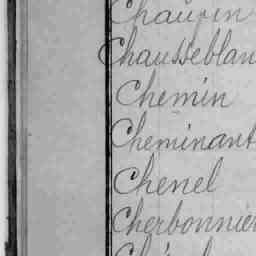 Chausseblan
Chemin
Cheminant
Chenel
Cherbonnier